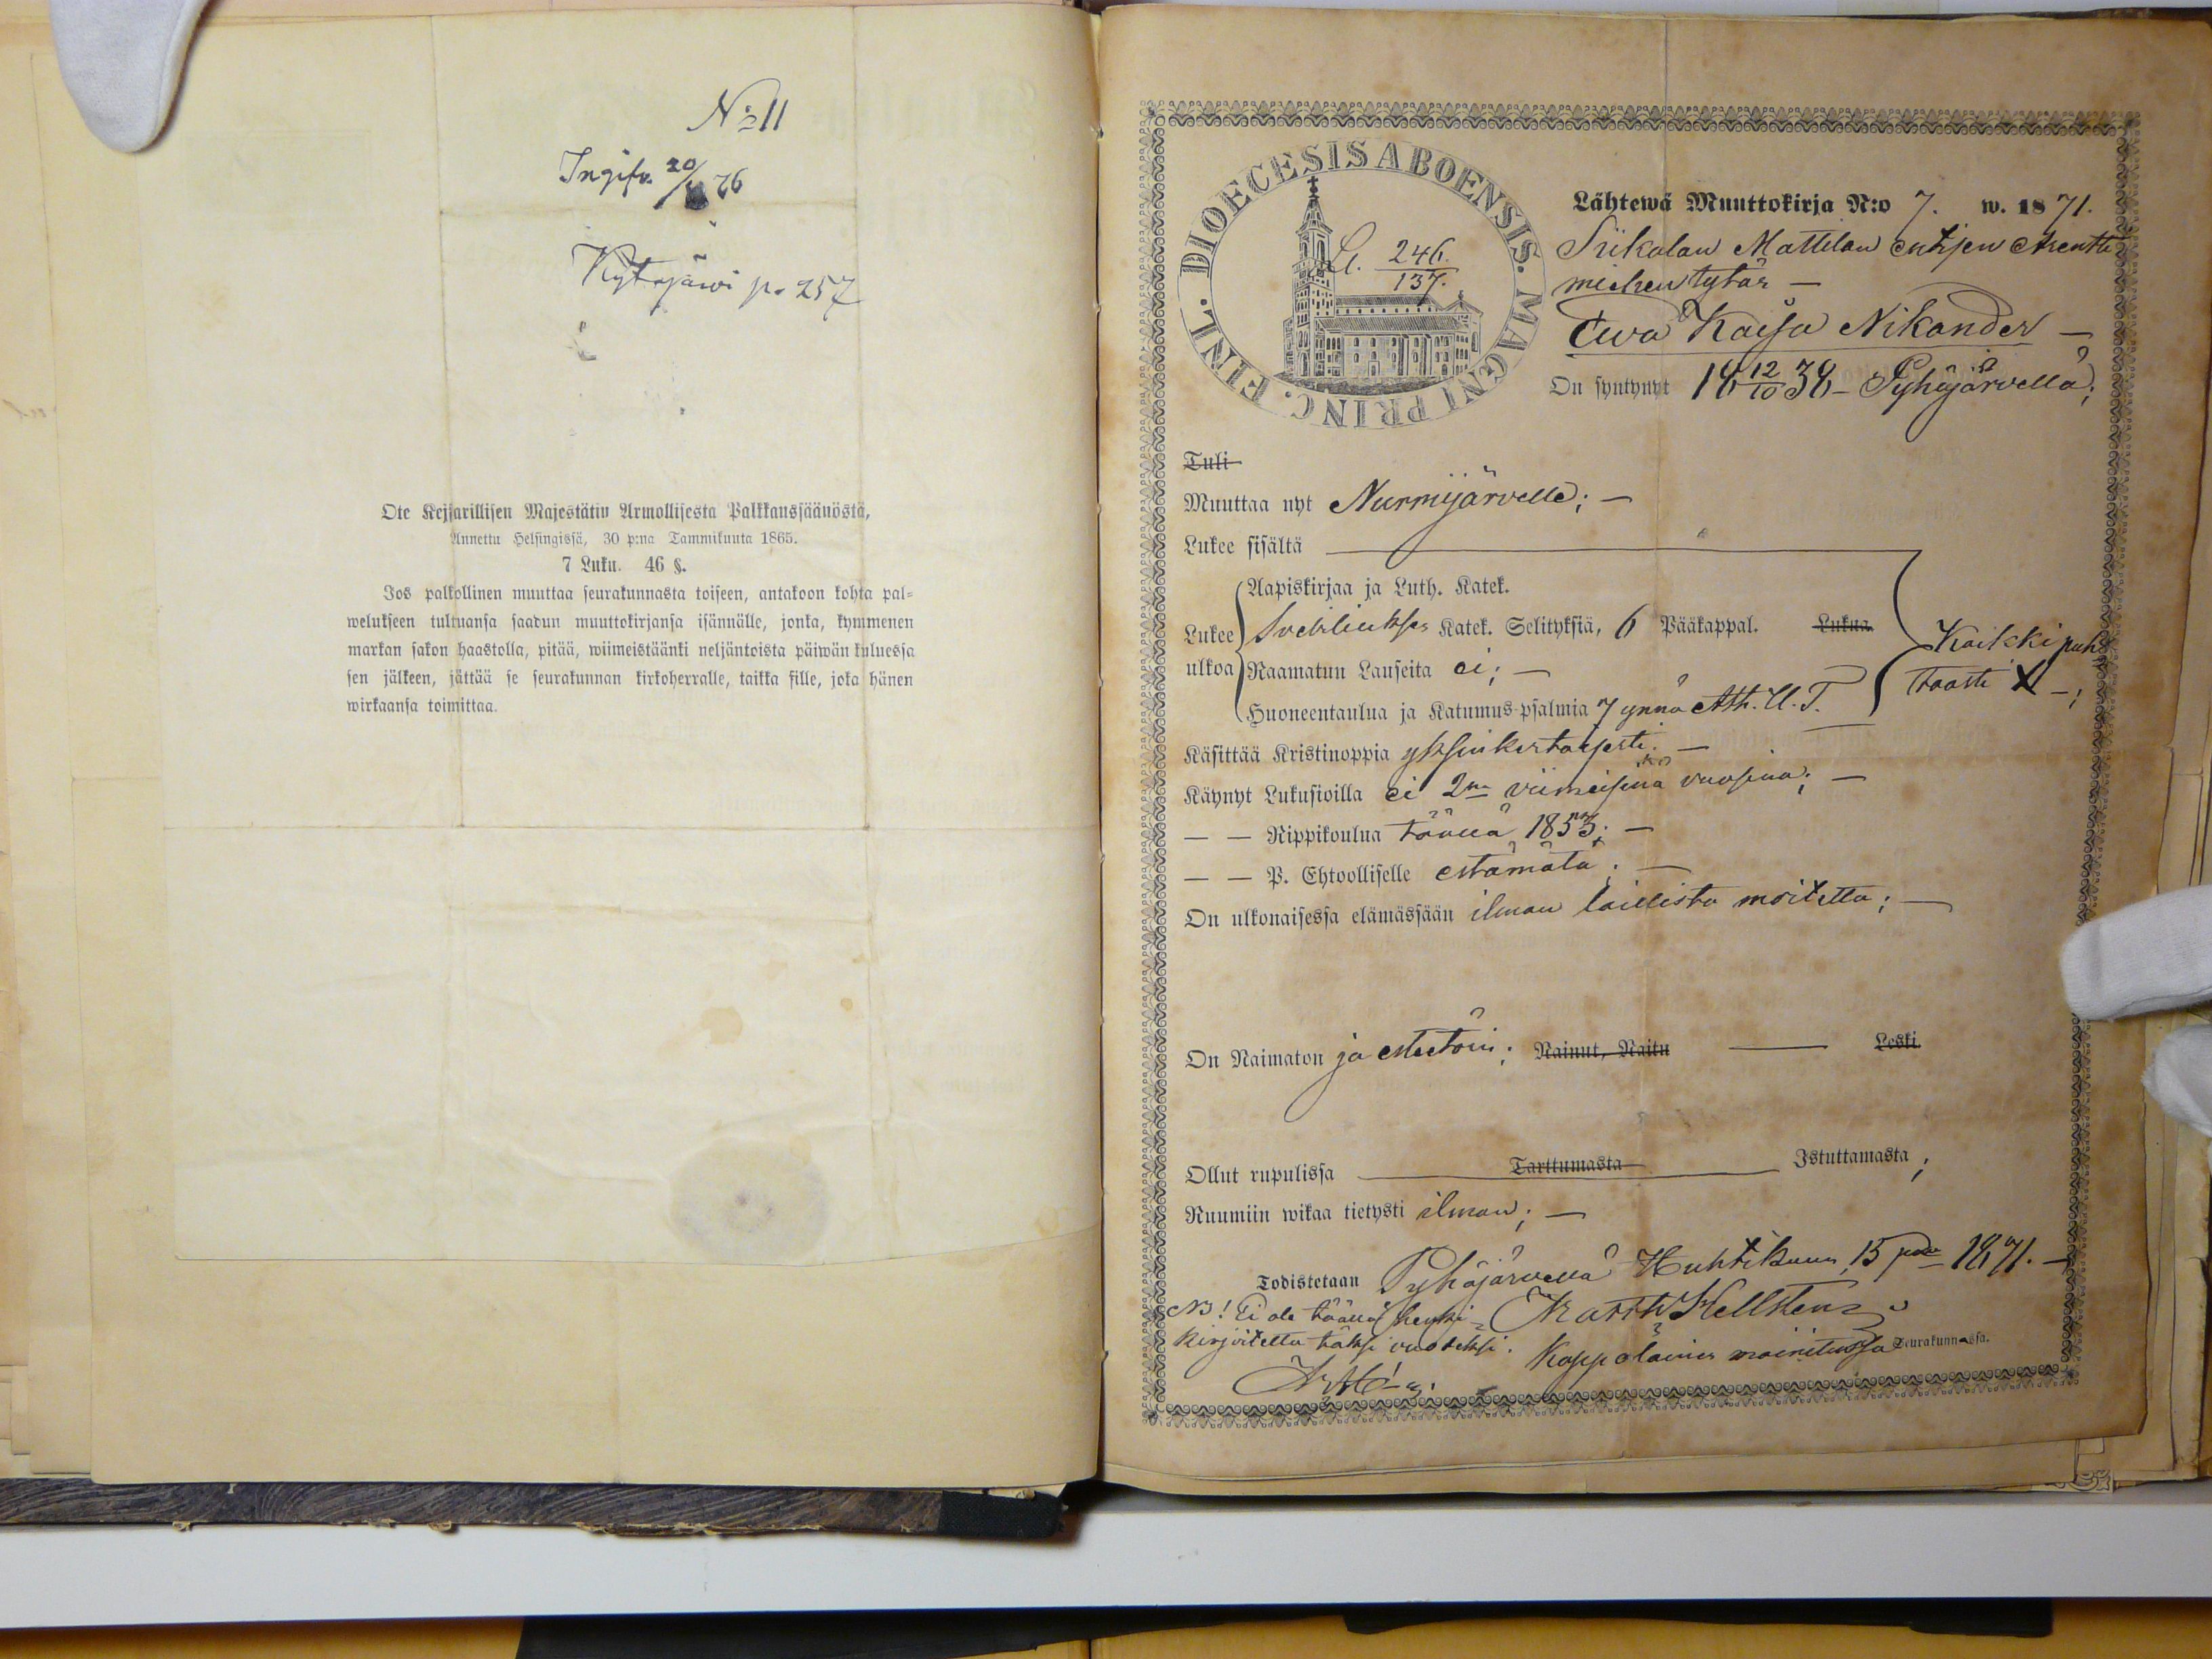 N:o 11
Ingifv. 20/ 76
Kytäjärvi p. 257
Ote Kejsarillisen Majestätin Armollisesta Palkkaussäänöstä,
Annettu Helsingissä, 30 p:na Tammikuuta 1865.
7 Luku. 46 §.
Jos palkollinen muuttaa seurakunnasta toiseen, antakoon kohta pal=
welukseen tultuansa saadun muuttokirjansa isännälle, jonka, kymmenen
markan sakon haastolla, pitää, wiimeistäänki neljäntoista päiwän kuluessa
sen jälkeen, jättää se seurakunnan kirkoherralle, taikka sille, joka hänen
wirkaansa toimittaa.
DIOECESIS ABOENSIS. MAGNI PRINC. FINL.
246.
137.
Lähtewä Muuttokirja N:o 7. w. 1871.
Siikalan Mattilan entisen Arenti
miehen tytär —
Ewa Kaisa Nikander —
On syntynyt 18 12/10 38 — Pyhäjärvellä;
Tuli
Muuttaa nyt Nurmijärvelle; —
Lukee sisältä
Aapiskirjaa ja Luth. Katek.
Lukee Svebiliuksen Katek. Selityksiä, 6 Pääkappal. Lukua.
Kaikki puh
ulkoa Raamatun Lauseita ei; —
taasti X —;
Huoneentaulua ja Katumus-psalmia 7 ynnä Ath. U. T.
Käsittää Kristinoppia yksinkertaisesti. —
Käynyt Lukusioilla ei 2na viimeisinä vuosina; —
— — Rippikoulua täällä 1853; —
— — P. Ehtoolliselle estämätä; —
On ulkonaisessa elämässään ilman laillista moitetta; —
On Naimaton ja esteetöin; Nainut, Naitu — Leski.
Ollut rupulissa Tarttumasta Istuttamasta;
Ruumiin wikaa tietysti ilman; —
Todistetaan Pyhäjärvellä Huhtikuun 15 pnä 1871. —
NB! Ei ole täällä henki= Hellsten
kirjoitettu täksi vuodeksi. Kappalainen mainitussa Seurakunnassa.